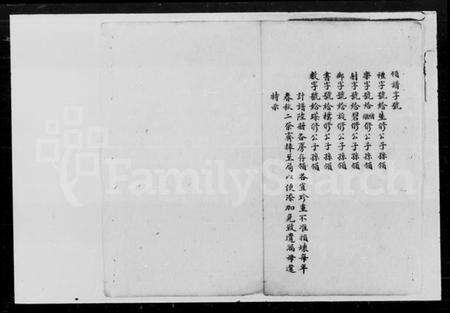 領譜字號
禮字號給生修公子孫領
樂字號給修公子孫領
射字號給碧修公子孫領
御字號給旋修公子孫領
書字號給樸修公子孫領
數字號給琛修公子孫領
計譜陸册各房存領各宜珍重不准損壞每年
春秋二祭賚歸至局以便添加免致遺漏毋違
特示
FamilySearch